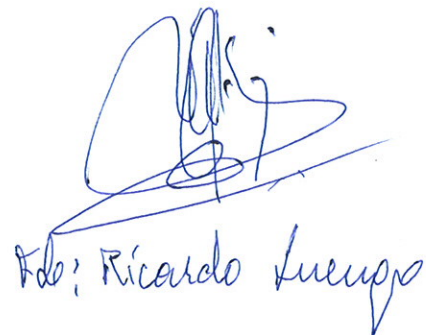 Fdo: Ricardo Luengo